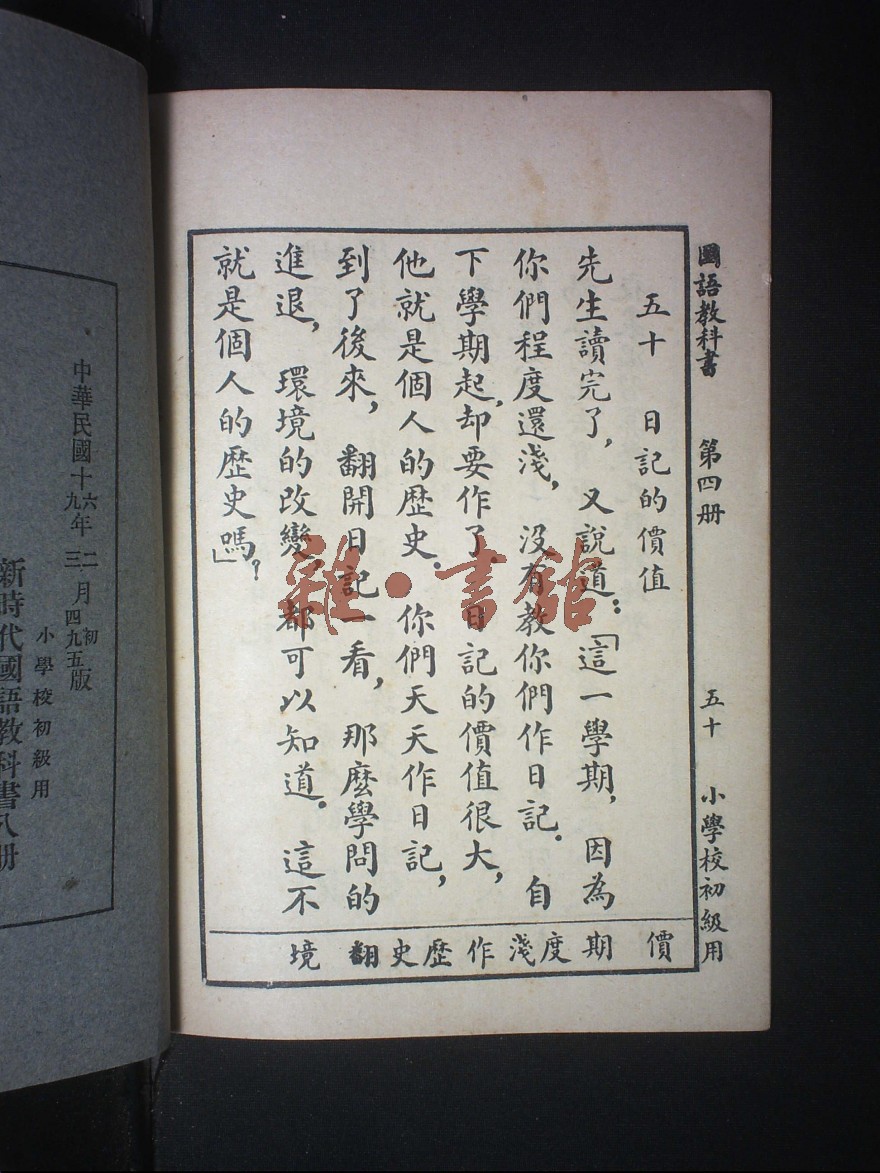 國語教科書 第四册 五十 小學校初級用
五十 日記的價值
先生讀完了，又說道：「這一學期，因為
你們程度還淺，沒有教你們作日記。自
下學期起，却要作了。日記的價值很大，
他就是個人的歷史。你們天天作日記，
到了後來，翻開日記一看，那麼學問的
進退，環境的改變，都可以知道。這不
就是個人的歷史嗎？」
價 期 度 淺 作 歷 史 翻 境
雜·書館
中華民國十六九年二三月初四九五版
小學校初級用
新時代國語教科書八册